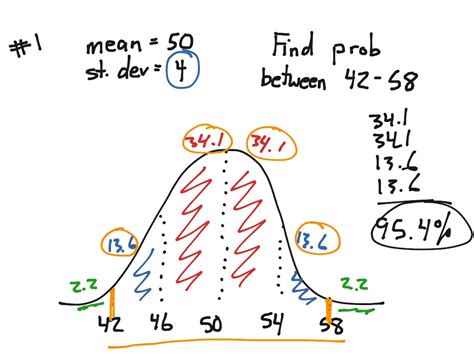 #1
mean = 50
st. dev = 4
Find prob
between 42-58
34.1
34.1
13.6
13.6
95.4%
34.1 34.1
13.6 13.6
2.2 2.2
42 46 50 54 58